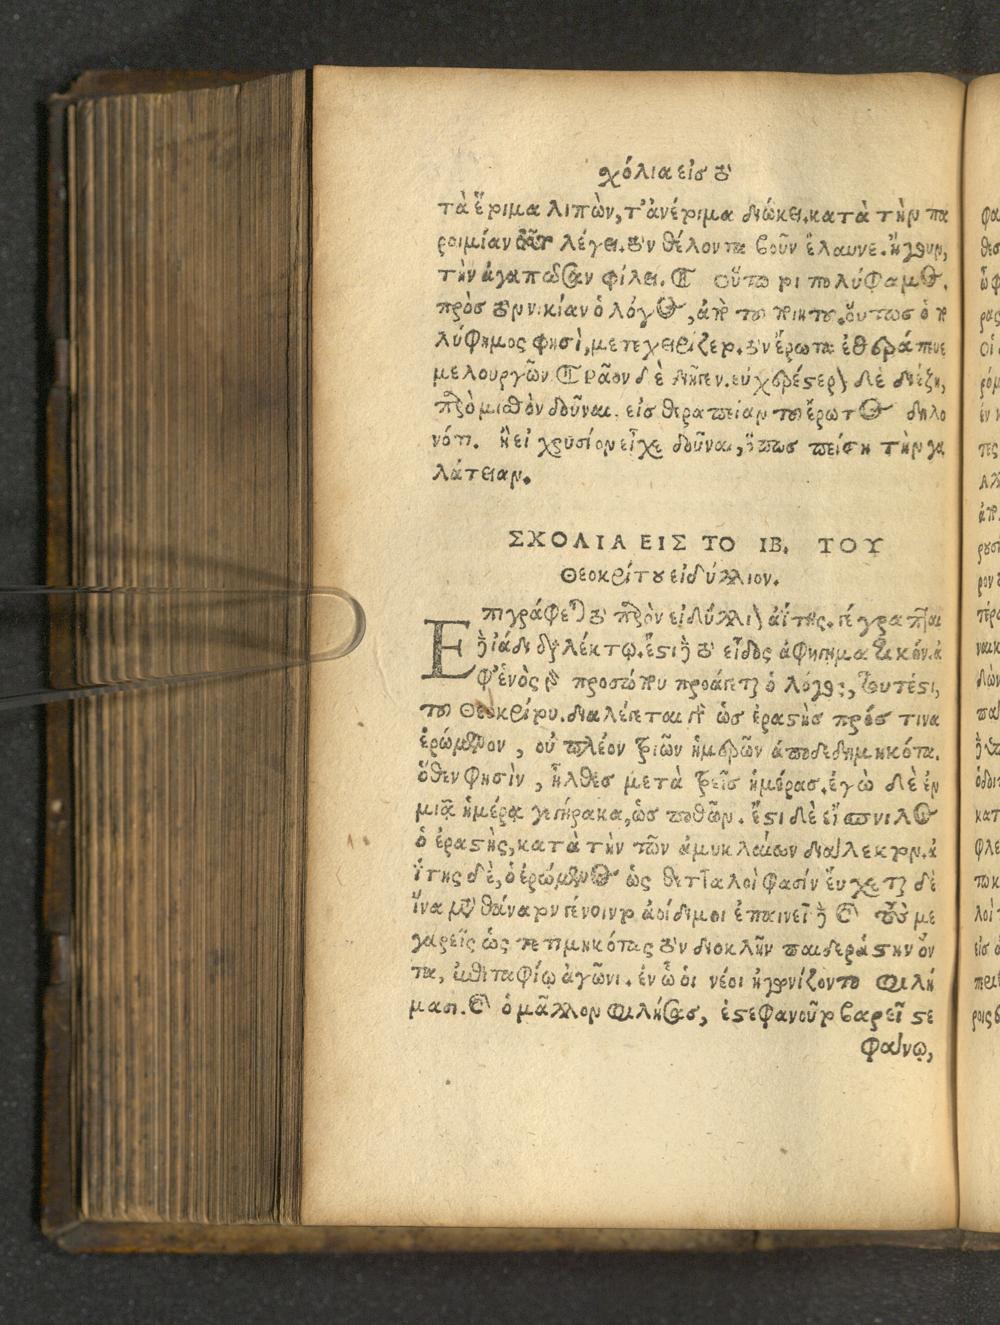 χόλια εἰς τὸ
τὰ ἕριμα λιπὼν, τ' ἀνέριμα διώκει. κατὰ τὴν πα
ροιμίαν λέγει. τὸν θέλοντα βοῦν ἔλαυνε. ἤγουν,
τὴν ἀγαπῶσαν φίλει. οὕτω πολύφαμος.
πρὸς τὸν νικίαν ὁ λόγος, ἀπὸ τοῦ ποιητοῦ. οὕτως ὁ πο
λύφημος φησὶ, μετεχειρίζετο τὸν ἔρωτα ἐθεράπευε
μελουργῶν ῥᾷον δὲ διῆγεν. εὐχερέστερον δὲ διέζη,
μισθὸν δοῦναι εἰς θεραπείαν τοῦ ἔρωτος δηλο
νότι. ἢ εἰ χρυσίον εἶχε δοῦναι, ὅπως πείσῃ τὴν γα
λάτειαν.
ΣΧΟΛΙΑ ΕΙΣ ΤΟ ΙΒ. ΤΟΥ
Θεοκρίτου εἰδύλλιον.
Επιγράφεται τὸ παρὸν εἰδύλλιον ἀΐτης. γέγραπται
δὲ ἰάδι διαλέκτῳ. ἔστι δὲ τὸ εἶδος ἀφηγηματικόν. ἀ
φ' ἑνὸς γὰρ προσώπου προάγεται ὁ λόγος, τουτέστι,
τοῦ Θεοκρίτου. διαλέγεται γὰρ ὡς ἐραστὴς πρός τινα
ἐρώμενον, οὐ πλέον τριῶν ἡμερῶν ἀποδεδημηκότα.
ὅθεν φησὶν, ἦλθες μετὰ τρεῖς ἡμέρας. ἐγὼ δὲ ἐν
μιᾷ ἡμέρᾳ γεγήρακα, ὡς ποθῶν. ἔστι δὲ εἴσπνιλος
ὁ ἐραστὴς, κατὰ τὴν τῶν ἀμυκλαίων διάλεκτον. ἀ
ΐτης δὲ, ὁ ἐρώμενος ὡς θετταλοὶ φασίν εὔχεται δὲ
ἵνα μετὰ θάνατον γένοιντο ἀοίδιμοι ἐπαινεῖ δὲ καὶ τοὺς με
γαρεῖς ὡς τετιμηκότας τὸν διοκλῆν παιδεραστὴν ὄν
τα, ἐπιταφίῳ ἀγῶνι. ἐν ᾧ οἱ νέοι ἠγωνίζοντο φιλή
μασι. καὶ ὁ μᾶλλον φιλήσας, ἐστεφανοῦτο βαρεῖ στε
φάνῳ,